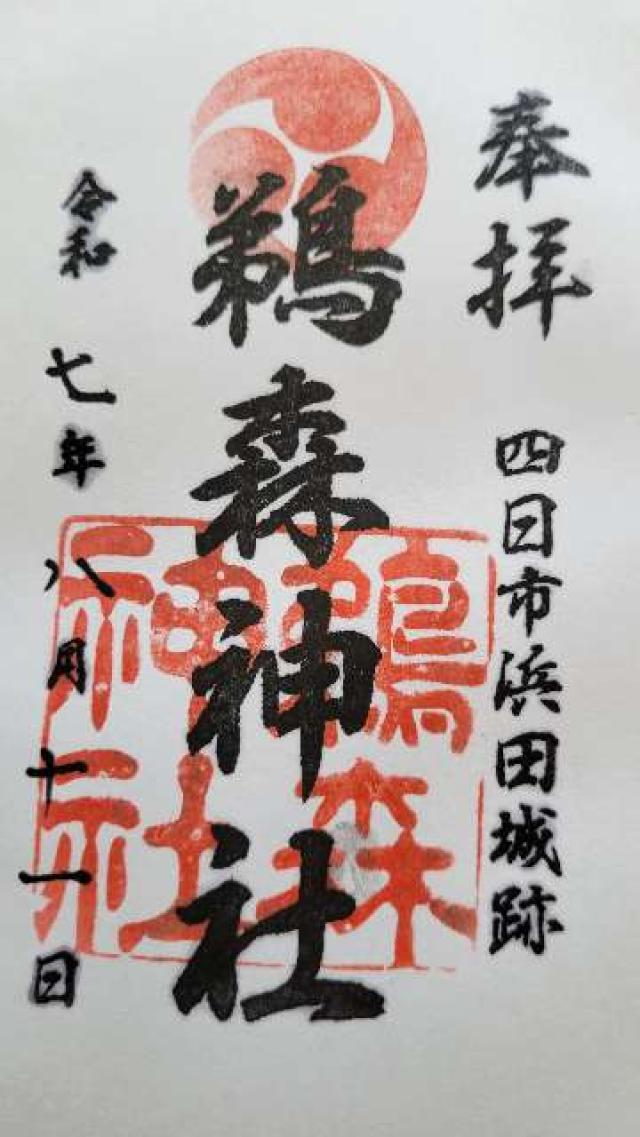 奉拝
四日市浜田城跡
鵜森神社
鵜森神社
令和七年八月十一日